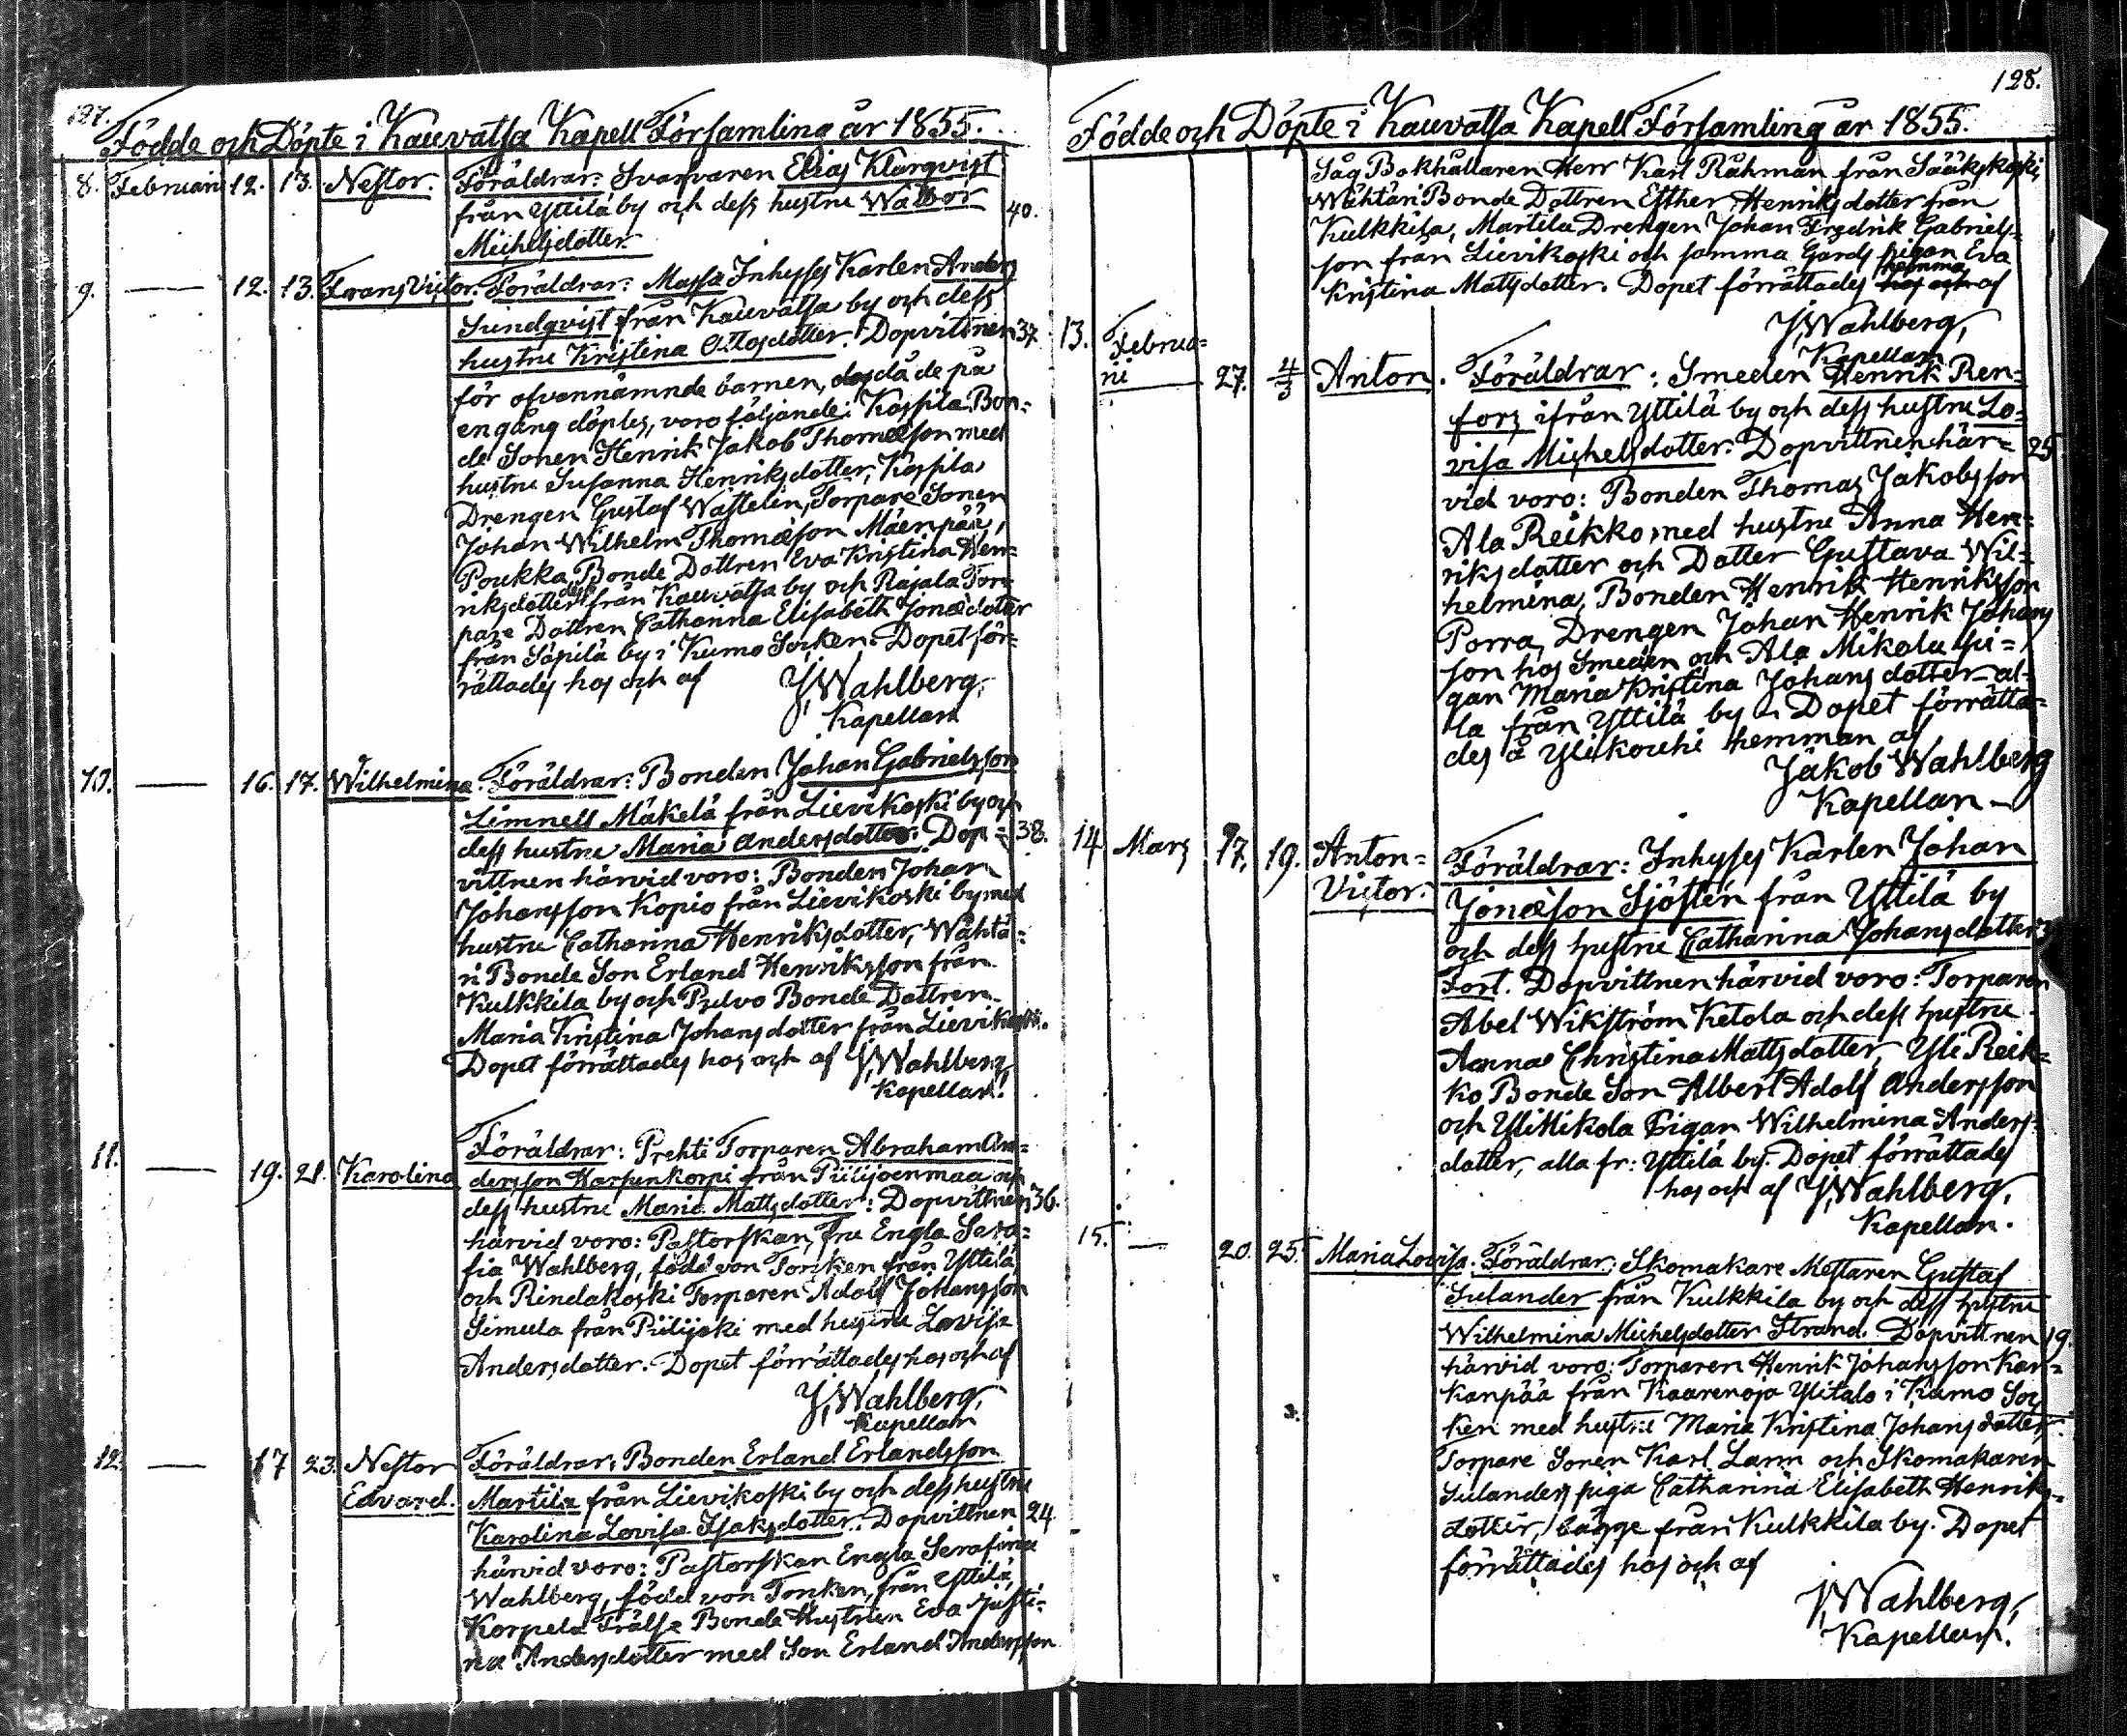 127.
Födde och Döpte i Kauvatsa Kapell Församling år 1855.
8. Februari 12. 13. Nestor. Föräldrar: Svarvaren Elias Klarqvist
från Yttilä by och dess hustru Walbor 40.
Michelsdotter.
9. — 12. 13. Frans Victor. Föräldrar: Massa Inhyses Karlen Anders
Sundqvist från Kauvatsa by och dess
hustru Kristina Ottosdotter. Dopvittnen 37
för ofvannämnde barnen, då de på
engång döptes, voro följande: Kaspila Bon=
de Sonen Henrik Jakob Thomæson med
hustru Susanna Henriksdotter, Kaspila
Drengen Gustaf Wastelin, Torpare Sonen
Johan Wilhelm Thomæson Mäenpää,
Poukka Bonde Dottren Eva Kristina Hen=
riksdotter från Kauvatsa by och Rajala Tor=
pare Dottren Catharina Elisabeth Jonædotter
från Säpilä by i Kumo Socken. Dopet för=
rättades hos och af J. Wahlberg,
Kapellan
10. — 16. 17. Wilhelmina. Föräldrar: Bonden Johan Gabrielsson
Limnell Mäkelä från Lievikoski by och
dess hustru Maria Andersdotter. Dop= 38.
vittnen härvid voro: Bonden Johan
Johansson Kopio från Lievikoski by med
hustru Catharina Henriksdotter, Wähtä=
ri Bonde Son Erland Henriksson från
Kulkkila by och Pulvo Bonde Dottren
Maria Kristina Johansdotter från Lievikoski.
Dopet förrättades hos och af J. Wahlberg,
Kapellan.
11. — 19. 21. Karolina Föräldrar: Prehti Torparen Abraham An=
dersson Harjunkorpi från Piilijoenmaa och
dess hustru Maria Mattsdotter: Dopvittnen 36.
härvid voro: Pastorskan, Fru Engla Sera=
fia Wahlberg, född von Torcken från Yttilä
och Rindakoski Torparen Adolf Johansson
Simula från Piilijoki med hustru Lovisa
Andersdotter. Dopet förrättades hos och af
J. Wahlberg,
Kapellan
12. — 17 23. Nestor Föräldrar: Bonden Erland Erlandsson
Edvard. Martila från Lievikoski by och dess hustru
Karolina Lovisa Isaksdotter. Dopvittnen 24
härvid voro: Pastorskan Engla Serafina
Wahlberg, född von Torcken, från Yttilä
Korpela Frälse Bonde Hustrun Eva Justi=
na Andersdotter med Son Erland Andersson
128.
Födde och Döpte i Kauvatsa Kapell Församling år 1855.
Såg Bokhållaren Herr Karl Råhman från Sääkskoski,
Wähtäri Bonde Dottren Esther Henriksdotter från
Kulkkila, Martila Drengen Johan Fredrik Gabriels=
son från Lievikoski och samma Gårds pigan Eva
Kristina Mattsdotter. Dopet förrättades hemma af
J. Wahlberg,
Kapellan
13. Februa=
ri 27. 4/3 Anton. Föräldrar: Smeden Henrik Ren=
fors ifrån Yttilä by och dess hustru Lo=
visa Michelsdotter. Dopvittnen här= 25
vid voro: Bonden Thomas Jakobsson
Ala Reikko med hustru Anna Hen=
riksdotter och Dotter Gustava Wil=
helmina, Bonden Henrik Henriksson
Porra, Drengen Johan Henrik Johans
son hos Smeden och Ala Mikola Pi=
gan Maria Kristina Johansdotter al=
la från Yttilä by. Dopet förrätta=
des å Ylikouhi hemman af
Jakob Wahlberg
Kapellan
14 Mars 17. 19. Anton= Föräldrar: Inhyses Karlen Johan
Victor. Jonæson Sjöstén från Yttilä by
och dess hustru Catharina Johansdotter
Fort. Dopvittnen härvid voro: Torparen
Abel Wikström Ketola och dess hustru
Anna Christina Mattsdotter, Yli Reik=
ko Bonde Son Albert Adolf Andersson
och Yli Mikola Pigan Wilhelmina Anders=
dotter, alla fr: Yttilä by. Dopet förrättades
hos och af J. Wahlberg,
Kapellan.
15. — 20. 25. Maria Lovisa. Föräldrar: Skomakare Mästaren Gustaf
Sulander från Kulkkila by och dess hustru
Wilhelmina Michelsdotter Strand. Dopvittnen 19.
härvid voro: Torparen Henrik Johansson Kan=
kanpää från Kaarenoja Ylitalo i Kumo Soc
ken med hustru Maria Kristina Johansdotter,
Torpare Sonen Karl Lann och Skomakaren
Sulanders piga Catharina Elisabeth Henriks=
dotter, bägge från Kulkkila by. Dopet
förrättades hos och af
J. Wahlberg,
Kapellan.